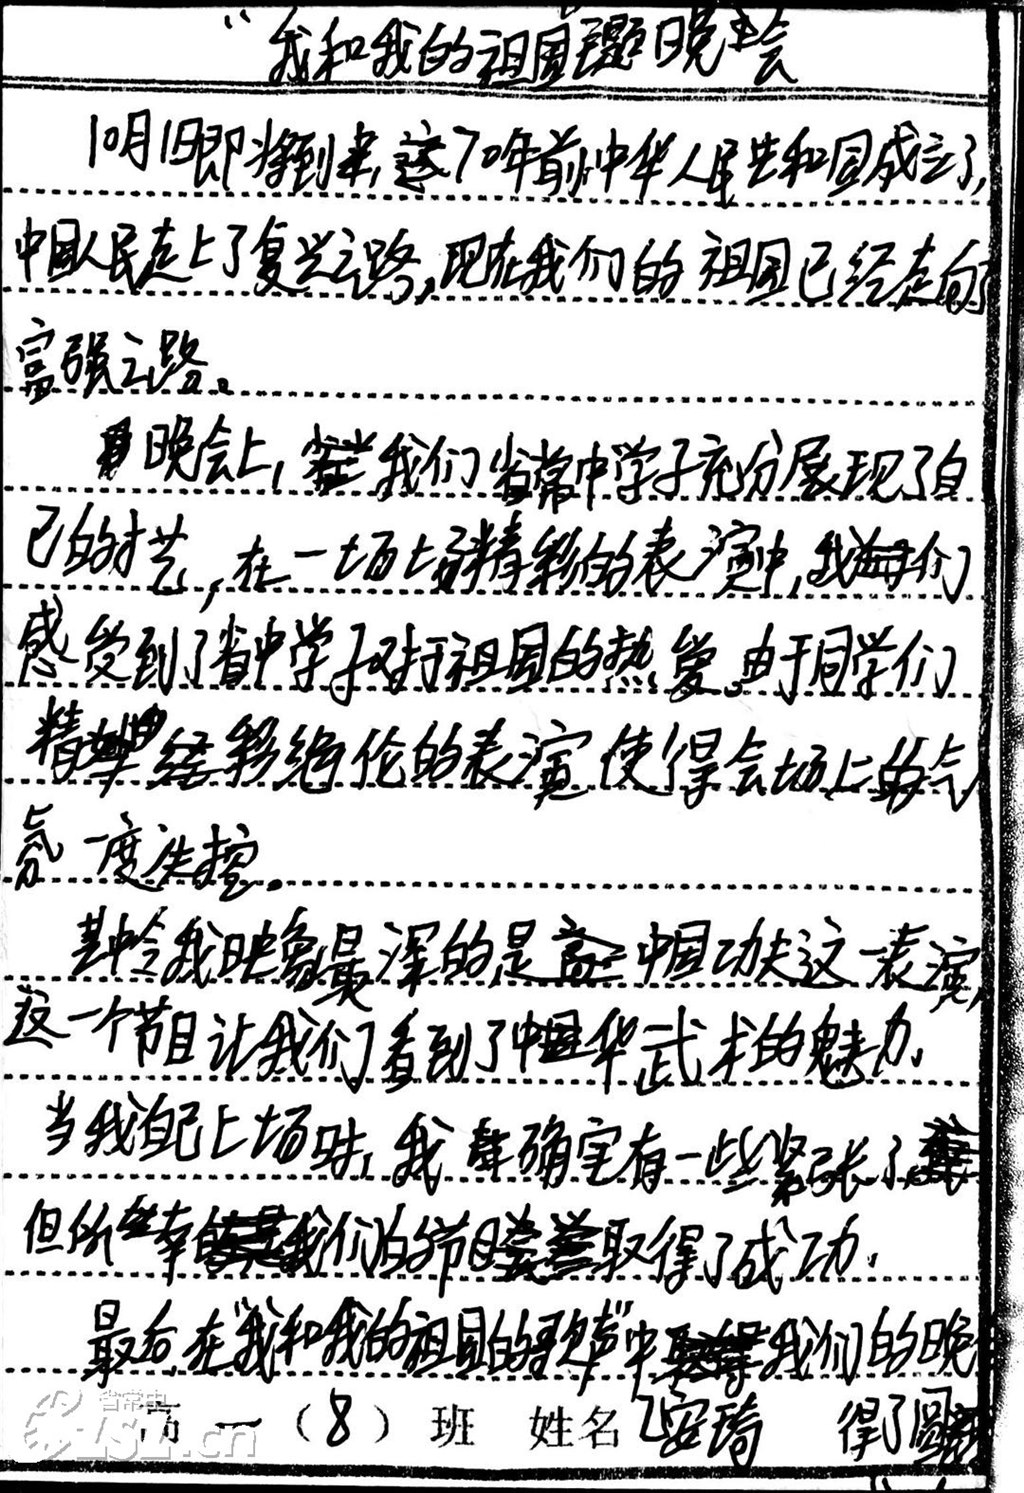 “我和我的祖国主题晚会
10月1日即将到来，这70年前，中华人民共和国成立了，
中国人民走上了复兴之路，现在我们的祖国已经走向了
富强之路。
晚会上，我们省常中学子充分展现了自
己的才艺，在一场场精彩的表演中，我们
感受到了省中学子对于祖国的热爱。由于同学们
精彩绝伦的表演 使得会场上的气
氛一度失控。
其中令我映象最深的是中国功夫这一表演，
这一个节目让我们看到了中华武术的魅力。
当我自己上场时，我确实有一些紧张了，
但所幸我们的节目取得了成功。
最后，在“我和我的祖国的歌声”中我们的晚
高一（8）班 姓名 安琦 得了圆
省常中